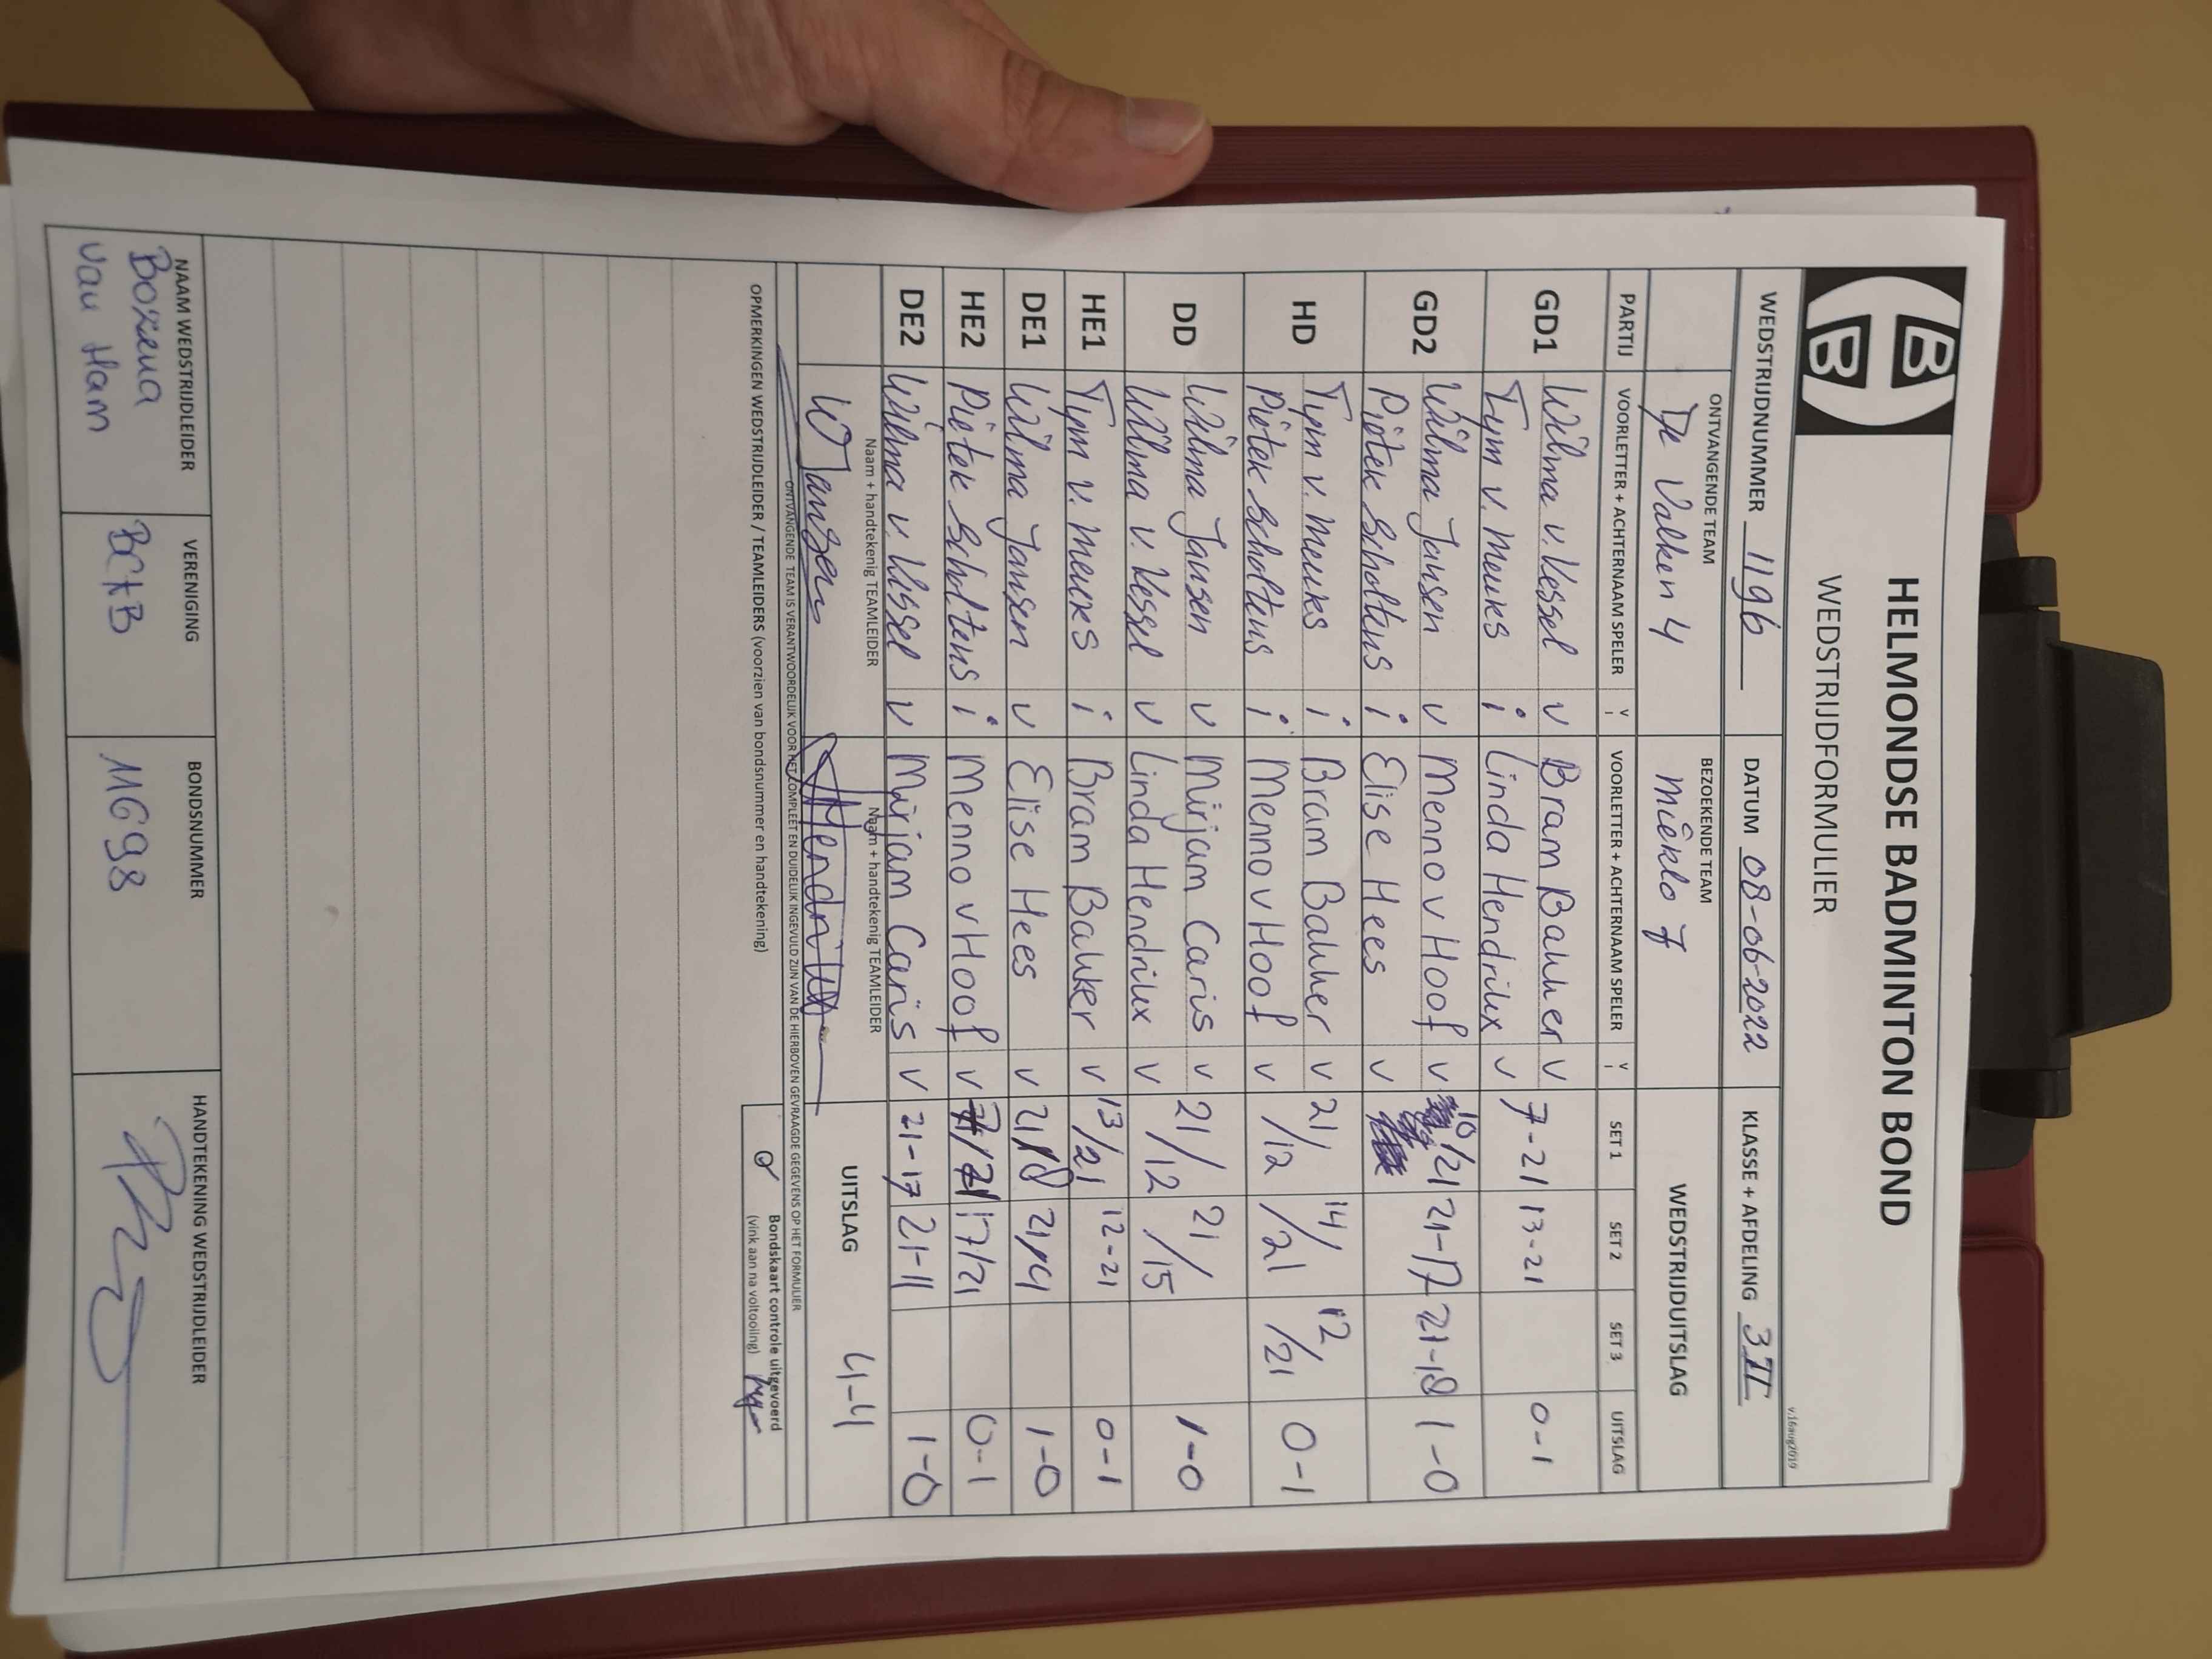 HELMONDSE BADMINTON BOND
WEDSTRIJDFORMULIER
v.16aug2019
WEDSTRIJDNUMMER 1196 DATUM 08-06-2022 KLASSE + AFDELING 3 II
ONTVANGENDE TEAM BEZOEKENDE TEAM WEDSTRIJDUITSLAG
De Valken 4 Mierlo 7
PARTIJ VOORLETTER + ACHTERNAAM SPELER V I VOORLETTER + ACHTERNAAM SPELER V I SET 1 SET 2 SET 3 UITSLAG
GD1 Wilma v. Kessel v Bram Bakker v 7-21 13-21 0-1
Tym v. Meuks i Linda Hendrikx v
GD2 Wilma Jansen v Menno v Hoof v 10/21 21-17 21-18 1-0
Pieter Scholtens i Elise Hees v
HD Tym v. Meuks i Bram Bakker v 21/12 14/21 12/21 0-1
Pieter Scholtens i Menno v Hoof v
DD Wilma Jansen v Mirjam Caris v 21/12 21/15 1-0
Wilma v. Kessel v Linda Hendrikx v
HE1 Tym v. Meuks i Bram Bakker v 13/21 12-21 0-1
DE1 Wilma Jansen v Elise Hees v 21/18 21/9 1-0
HE2 Pieter Scholtens i Menno v Hoof v 7/21 17/21 0-1
DE2 Wilma v. Kessel v Mirjam Caris v 21-17 21-11 1-0
Naam + handtekenig TEAMLEIDER Naam + handtekenig TEAMLEIDER
W Jansen Hendrikx UITSLAG 4-4
ONTVANGENDE TEAM IS VERANTWOORDELIJK VOOR HET COMPLEET EN DUIDELIJK INGEVULD ZIJN VAN DE HIERBOVEN GEVRAAGDE GEGEVENS OP HET FORMULIER
OPMERKINGEN WEDSTRIJDLEIDER / TEAMLEIDERS (voorzien van bondsnummer en handtekening)
Bondskaart controle uitgevoerd
(vink aan na voltooiing)
NAAM WEDSTRIJDLEIDER VERENIGING BONDSNUMMER HANDTEKENING WEDSTRIJDLEIDER
Bozena BCHB 11698
van Ham